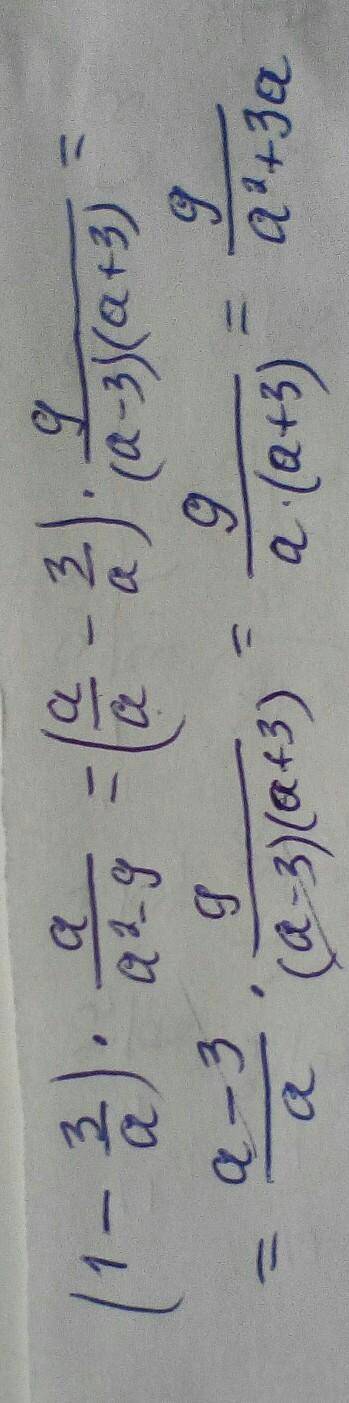 (1 - 3/a) · a/(a²-9) = (a/a - 3/a) · 9/((a-3)(a+3)) =
= (a-3)/a · 9/((a-3)(a+3)) = 9/(a·(a+3)) = 9/(a²+3a)